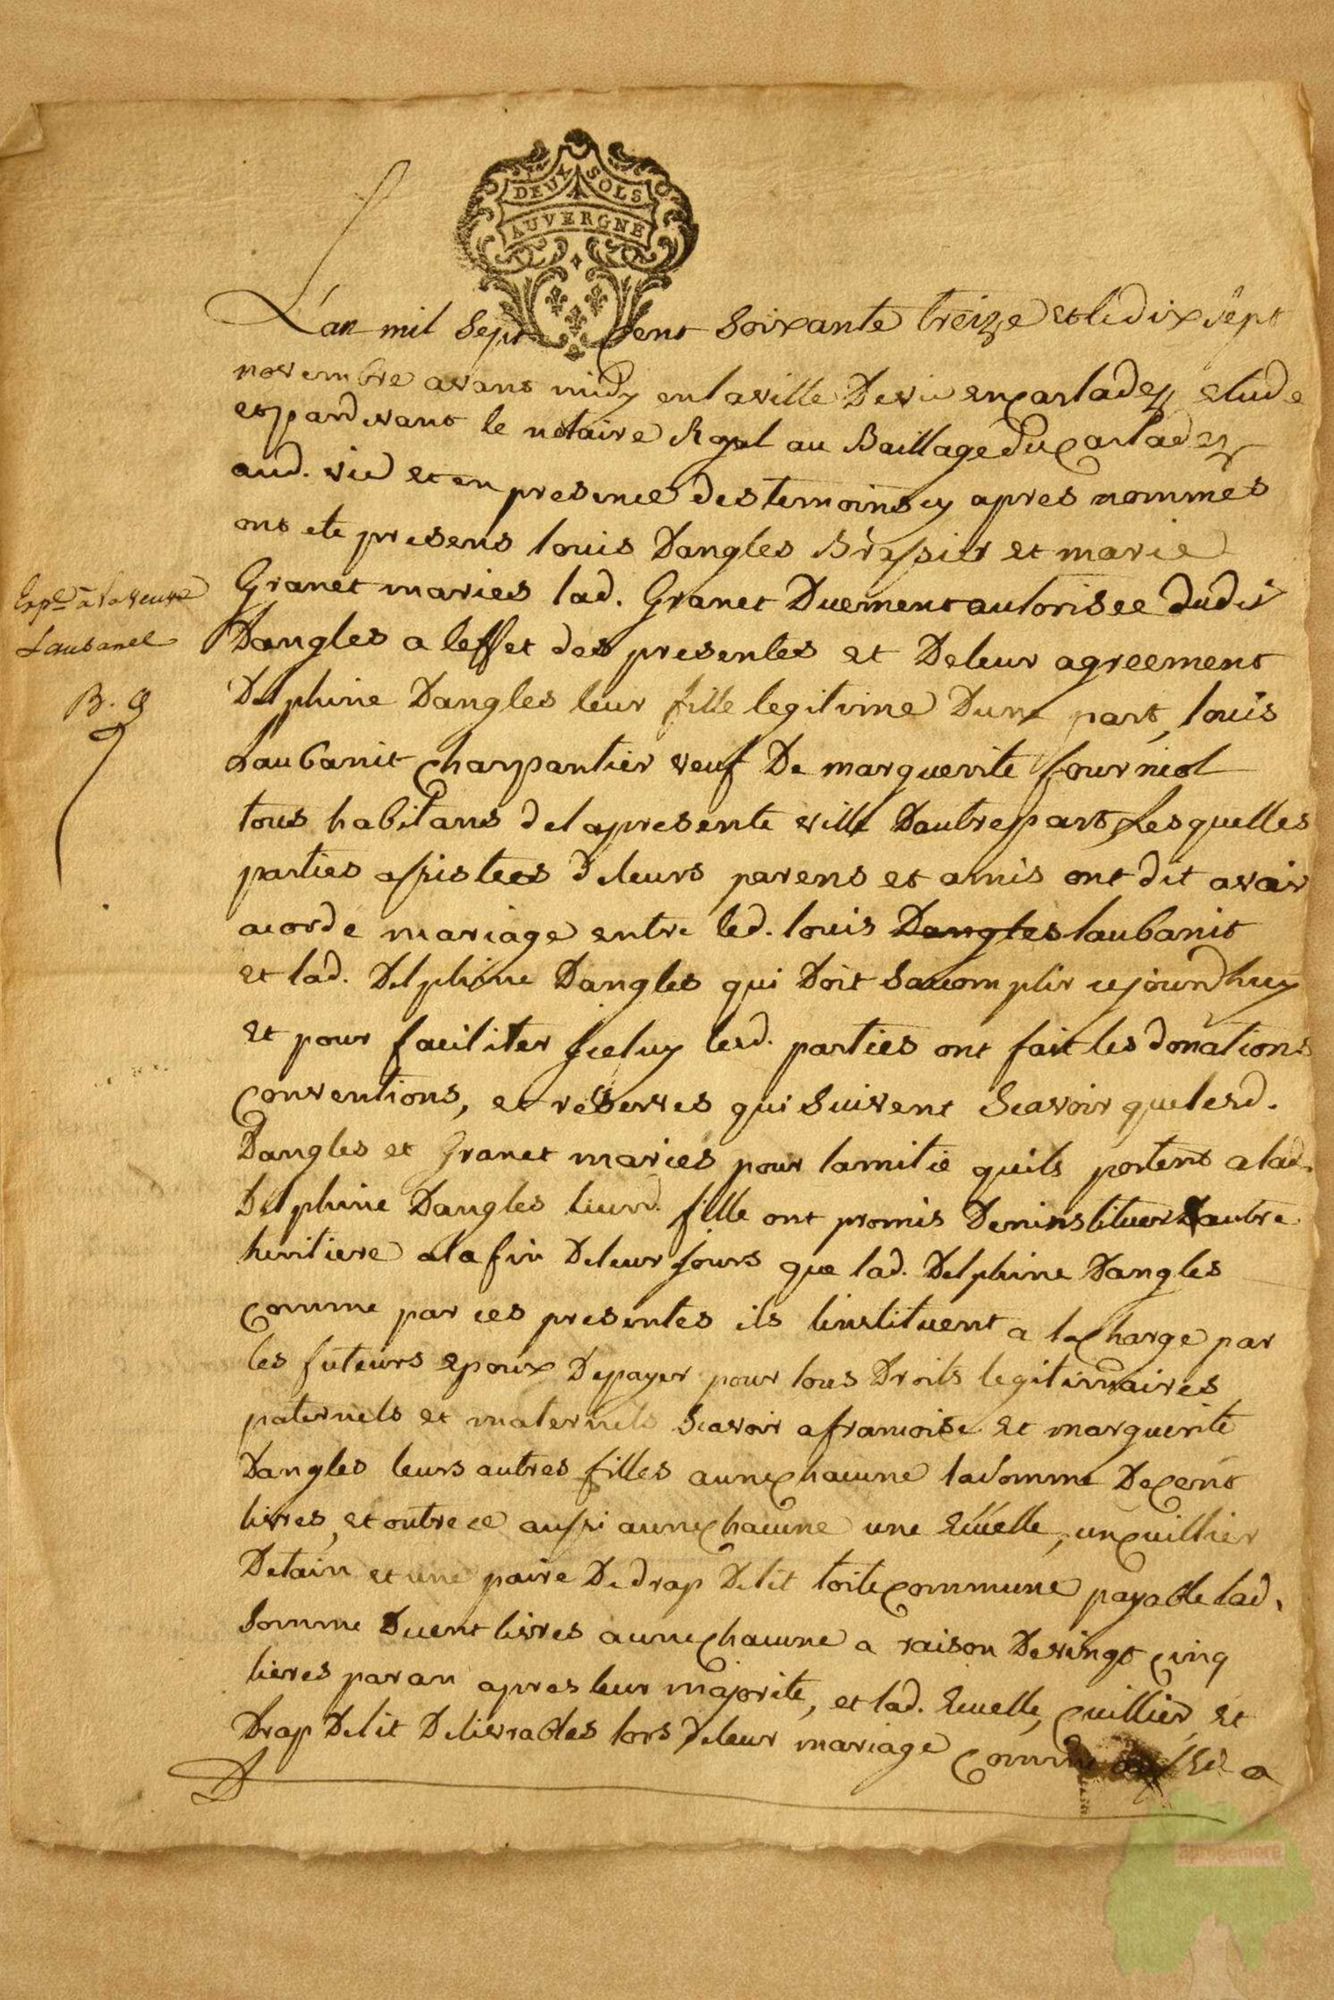 DEUX SOLS
AUVERGNE
L'an mil Sept Cent Soixante treize et le dix sept
novembre avant midy en la ville De vic en Carladez etude
et pardevant le notaire Royal au Baillage du Carladez
aud. vic et en presence des temoins cy apres nommés
ont ete presens louis Dangles Brassier et marie
Granet mariés lad. Granet Duement autorisée dudit
Dangles a leffet des presentes et De leur agreement
Delphine Dangles leur fille legitime Dune part, louis
Laubanit Charpantier veuf De marguerite fourniol
tous habitans de la presente ville Dautre part Lesquelles
parties assistees de leurs parens et amis ont dit avoir
acordé mariage entre led. louis Dangles laubanit
et lad. Delphine Dangles qui Doit Sacomplir cejourdhuy
et pour faciliter Jceluy lesd. parties ont fait les donations
Conventions, et reserves qui Suivent Scavoir que lesd.
Dangles et Granet mariés pour lamitié quils portent a lad.
Delphine Dangles leurd. fille ont promis Deninstituer Dautre
heritiere a la fin De leur Jours que lad. Delphine Dangles
Comme par ces presentes ils linstituent a la Charge par
les futeurs epoux De payer pour tous Droits legitimaires
paternels et maternels Scavoir a francoise et marguerite
Dangles leurs autres filles a une Chacune la Somme De Cent
livres, et outre ce aussi a une Chacune une Ecuelle, un Cuillier
Detain et une paire De drap De lit toile Commune payable lad.
Somme De cent livres a une Chacune a raison De vingt Cinq
livres par an apres leur majorité, et lad. Ecuelle, Cuillier, et
Drap De lit Delivrables lors De leur mariage Comme
Expé a la veuve
Laubanel
B. G